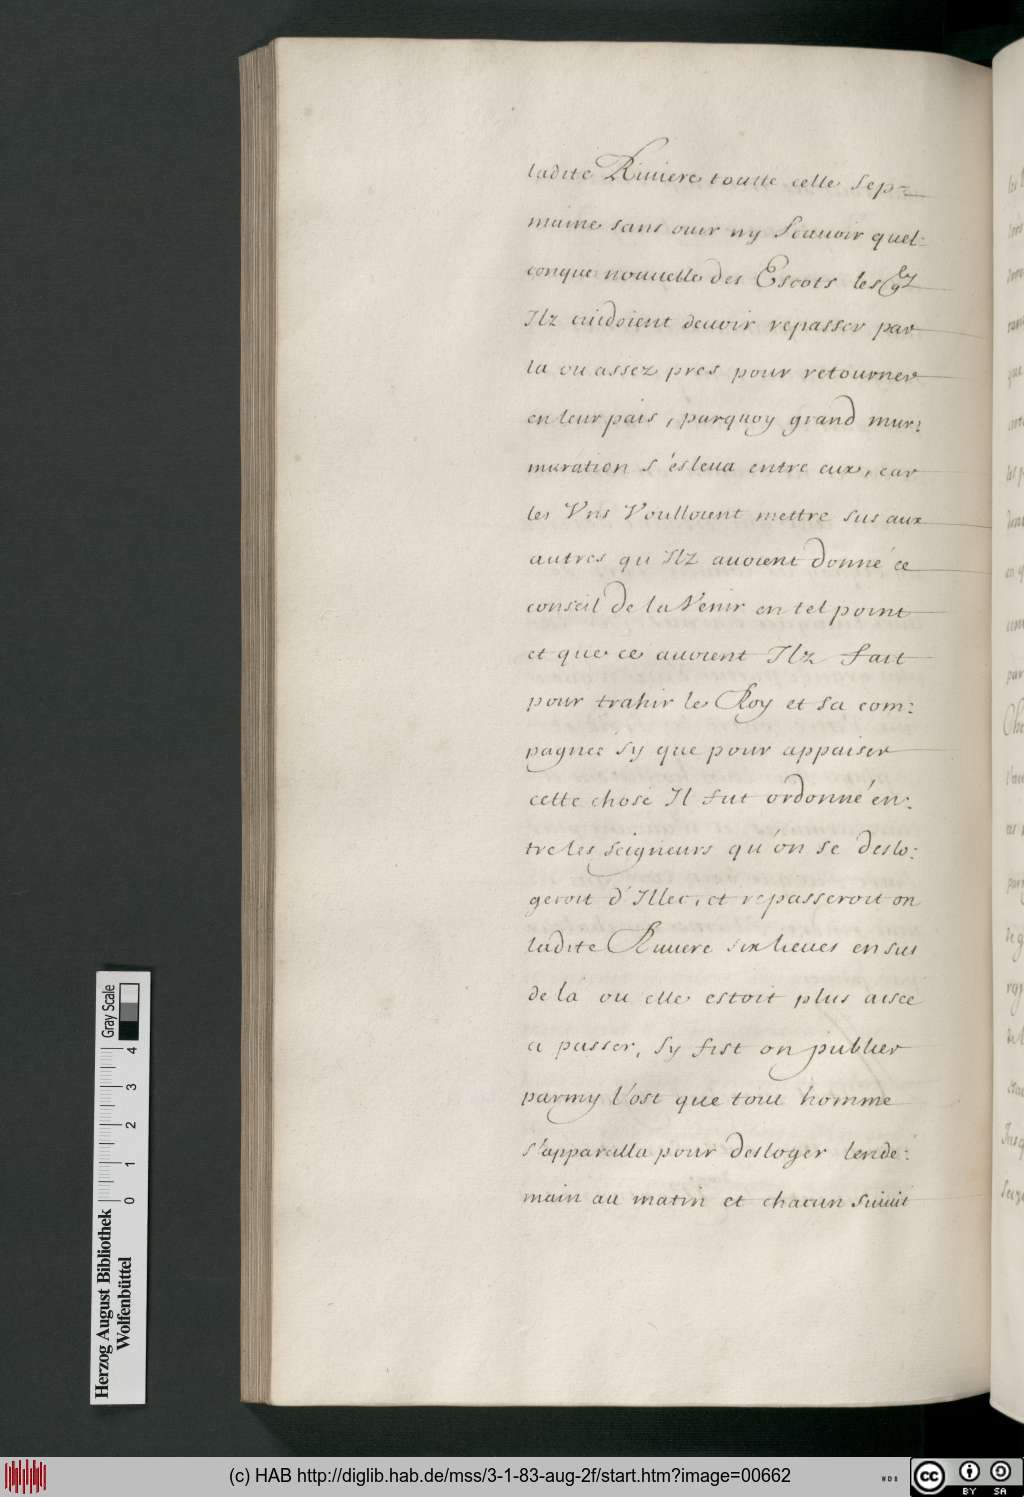 ladite Riuiere toutte celle sep-
maine sans ouir ny Scauoir quel-
conque nouuelle des Escots lesqlz
Ilz cuidoient deuoir repasser par
la ou assez pres pour retourner
en leur païs, parquoy grand mur-
muration s'ésleua entre eux, car
les Vns Voulloient mettre sus aux
autres qu Ilz auoient donné ce
conseil de la Venir en tel point
et que ce auoient Ilz fait
pour trahir le Roy et sa com-
pagneé sy que pour appaiser
cette chose Il fut ordonné en-
tre les seigneurs qu'on se deslo-
geroit d'Illec, et repasseroit on
ladite Riuiere six lieues en sus
de lá ou elle estoit plus aiseé
a passer, sy fist on publier
parmy l'ost que tout homme
s'apparalla pour desloger lende-
main au matin et chacun suiuit
Gray Scale
4 3 2 1 0
Herzog August Bibliothek
Wolfenbüttel
(c) HAB http://diglib.hab.de/mss/3-1-83-aug-2f/start.htm?image=00662
WDB
cc BY SA